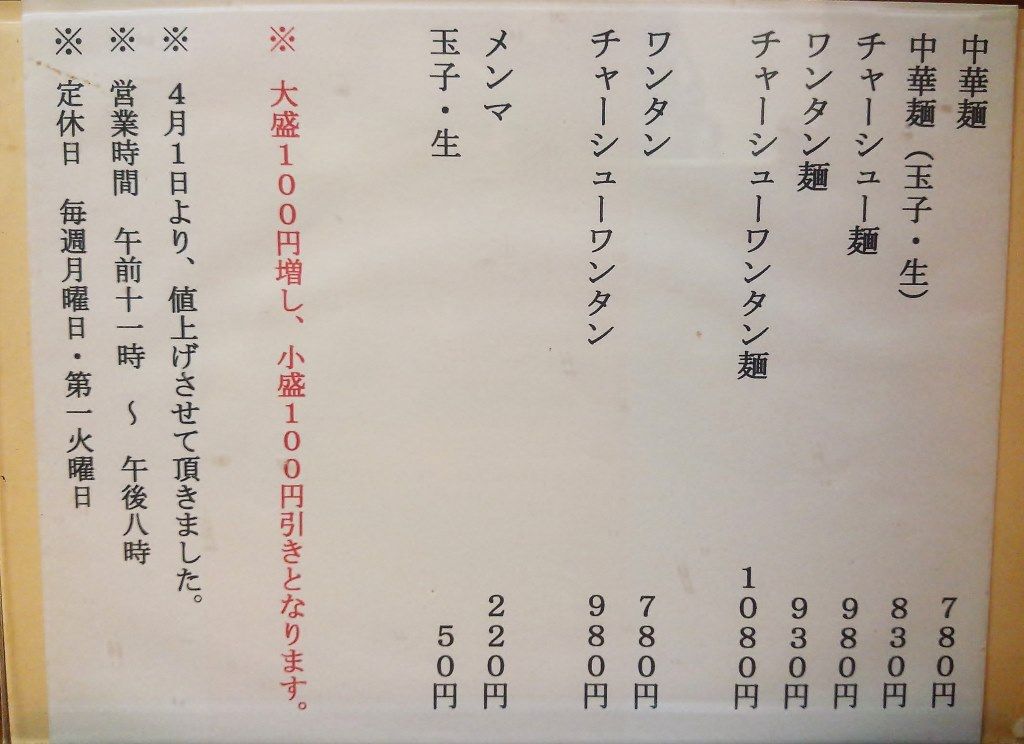 中華麺 780円
中華麺（玉子・生） 830円
チャーシュー麺 980円
ワンタン麺 930円
チャーシューワンタン麺 1080円
ワンタン 780円
チャーシューワンタン 980円
メンマ 220円
玉子・生 50円
※ 大盛100円増し、小盛100円引きとなります。
※ 4月1日より、値上げさせて頂きました。
※ 営業時間 午前十一時 〜 午後八時
※ 定休日 毎週月曜日・第一火曜日